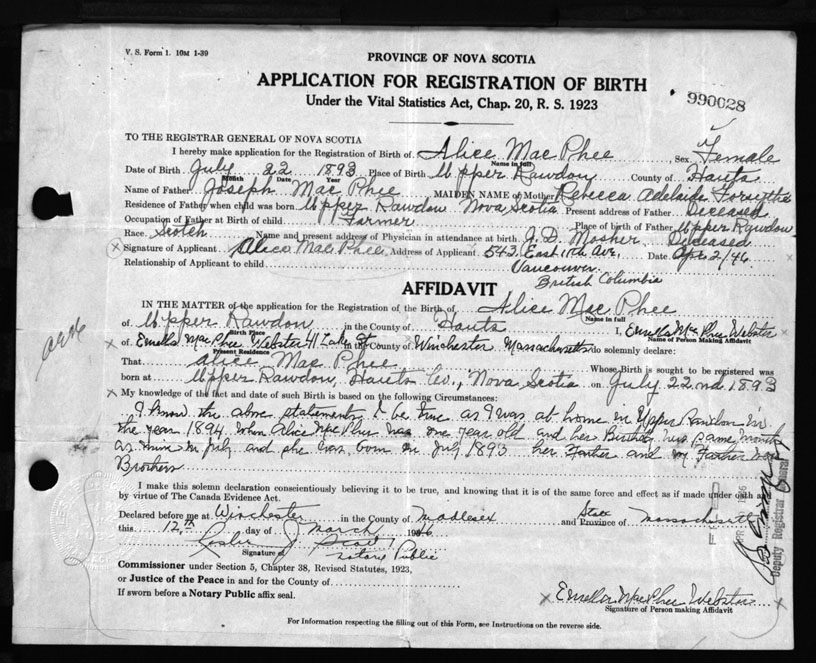 V. S. Form 1. 10M 1-39
PROVINCE OF NOVA SCOTIA
APPLICATION FOR REGISTRATION OF BIRTH
Under the Vital Statistics Act, Chap. 20, R. S. 1923
990028
TO THE REGISTRAR GENERAL OF NOVA SCOTIA
I hereby make application for the Registration of Birth of Alice Mac Phee Sex Female
Name in full
Date of Birth July 22 1893 Place of Birth Upper Rawdon County of Hants
Month Date Year
Name of Father Joseph Mac Phee MAIDEN NAME of Mother Rebecca Adelaide Forsythe
Residence of Father when child was born Upper Rawdon Nova Scotia Present address of Father Deceased
Occupation of Father at Birth of child Farmer Place of birth of Father Upper Rawdon
Race Scotch Name and present address of Physician in attendance at birth J. D. Mosher, Deceased
X Signature of Applicant Alice Mac Phee Address of Applicant 543 East 11th Ave, Date Apr. 2/46
Relationship of Applicant to child Vancouver
British Columbia
AFFIDAVIT
IN THE MATTER of the application for the Registration of the Birth of Alice Mac Phee
Name in full
of Upper Rawdon in the County of Hants I, Emella Mac Phee Webster
Birth Place Name of Person Making Affidavit
of Emella Mac Phee Webster 41 Lake St in the County of Winchester Massachusetts do solemnly declare:
Present Residence
That Alice Mac Phee Whose Birth is sought to be registered was
born at Upper Rawdon, Hants Co., Nova Scotia on July 22nd 1893
X My knowledge of the fact and date of such Birth is based on the following Circumstances:
I know the above statements to be true as I was at home in Upper Rawdon in
the year 1894 when Alice Mac Phee was one year old and her Birthday was same month
as mine in July and she was born in July 1893 her Father and my Father were
Brothers
I make this solemn declaration conscientiously believing it to be true, and knowing that it is of the same force and effect as if made under oath and
by virtue of The Canada Evidence Act.
Declared before me at Winchester in the County of Middlesex and State Province of Massachusetts
this 12th day of March 1946
Signature of Notary Public
Commissioner under Section 5, Chapter 38, Revised Statutes, 1923,
or Justice of the Peace in and for the County of
If sworn before a Notary Public affix seal.
X Emella Mac Phee Webster X
Signature of Person making Affidavit
Deputy Registrar General
For Information respecting the filling out of this Form, see Instructions on the reverse side.